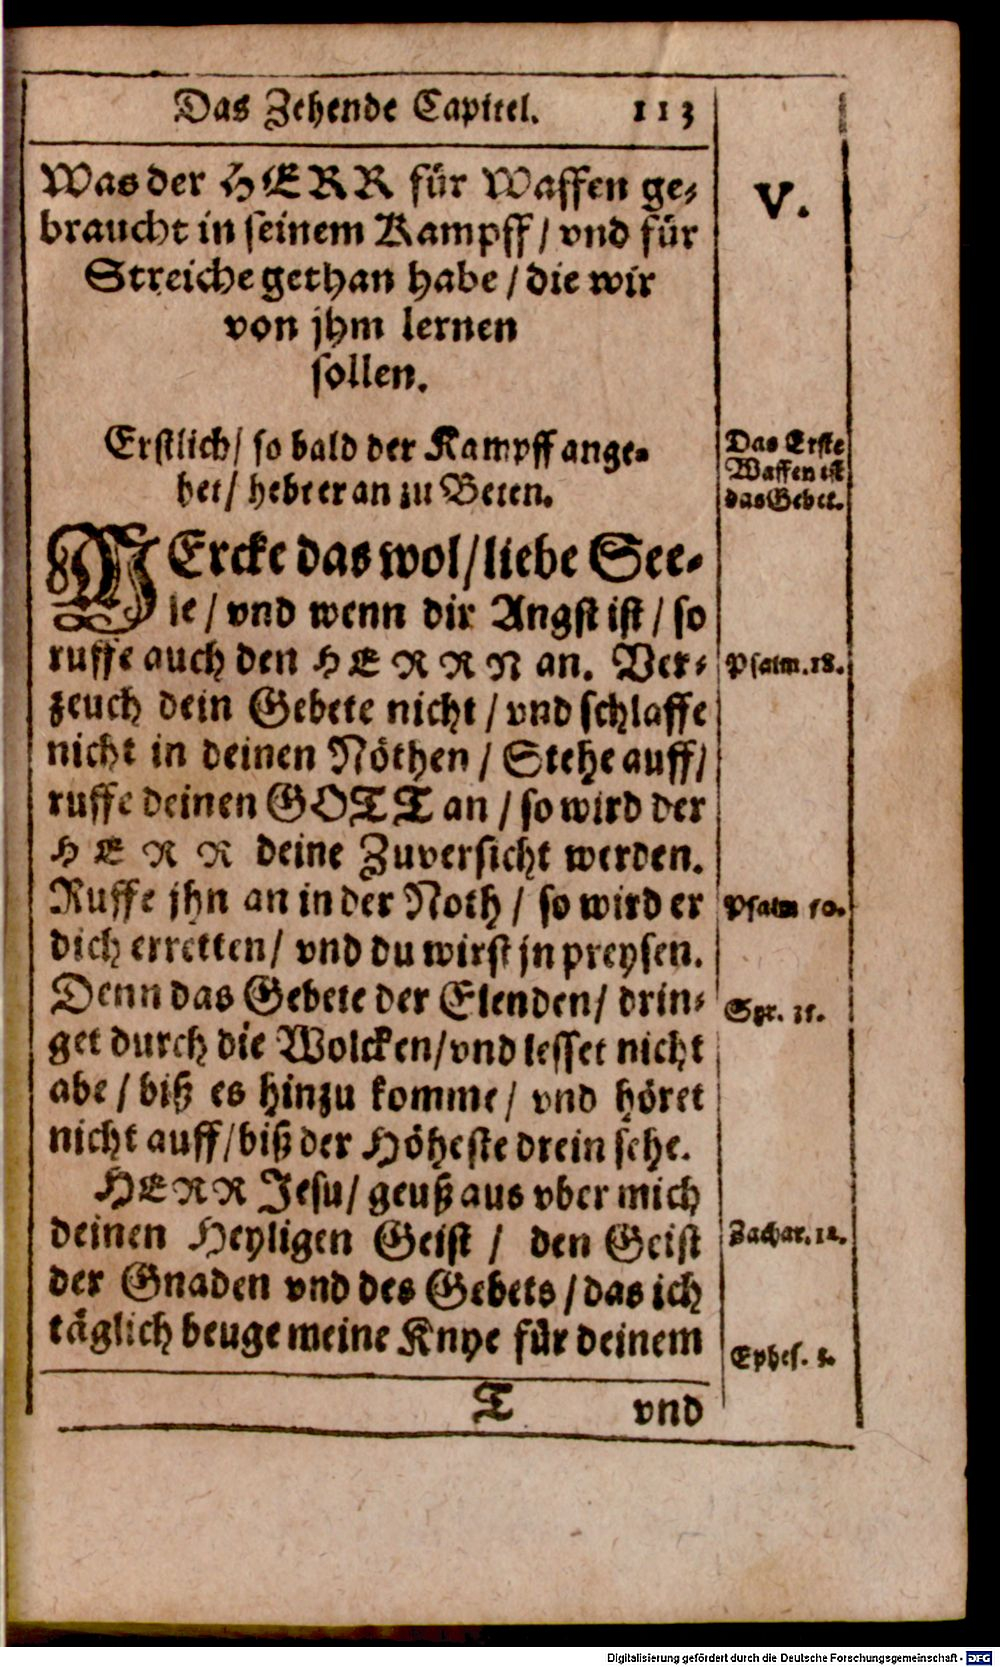 Das Zehende Capitel. 113
Was der HERR für Waffen ge-
braucht in seinem Kampff / vnd für
Streiche gethan habe / die wir
von jhm lernen
sollen.
V.
Erstlich / so bald der Kampff ange-
het / hebt er an zu Beten.
Das Erste
Waffen ist
das Gebet.
MErcke das wol / liebe See-
le / vnd wenn dir Angst ist / so
ruffe auch den HERRN an. Ver-
Psalm. 18.
zeuch dein Gebete nicht / vnd schlaffe
nicht in deinen Nöthen / Stehe auff /
ruffe deinen GOTT an / so wird der
HERR deine Zuversicht werden.
Ruffe jhn an in der Noth / so wird er
Psalm 50.
dich erretten / vnd du wirst jn preysen.
Denn das Gebete der Elenden / drin-
Syr. 35.
get durch die Wolcken / vnd lesset nicht
abe / biß es hinzu komme / vnd höret
nicht auff / biß der Höheste drein sehe.
HERR Jesu / geuß aus vber mich
deinen Heyligen Geist / den Geist
Zachar. 12.
der Gnaden vnd des Gebets / das ich
täglich beuge meine Knye für deinem
Ephes. 3.
T vnd
Digitalisierung gefördert durch die Deutsche Forschungsgemeinschaft - DFG